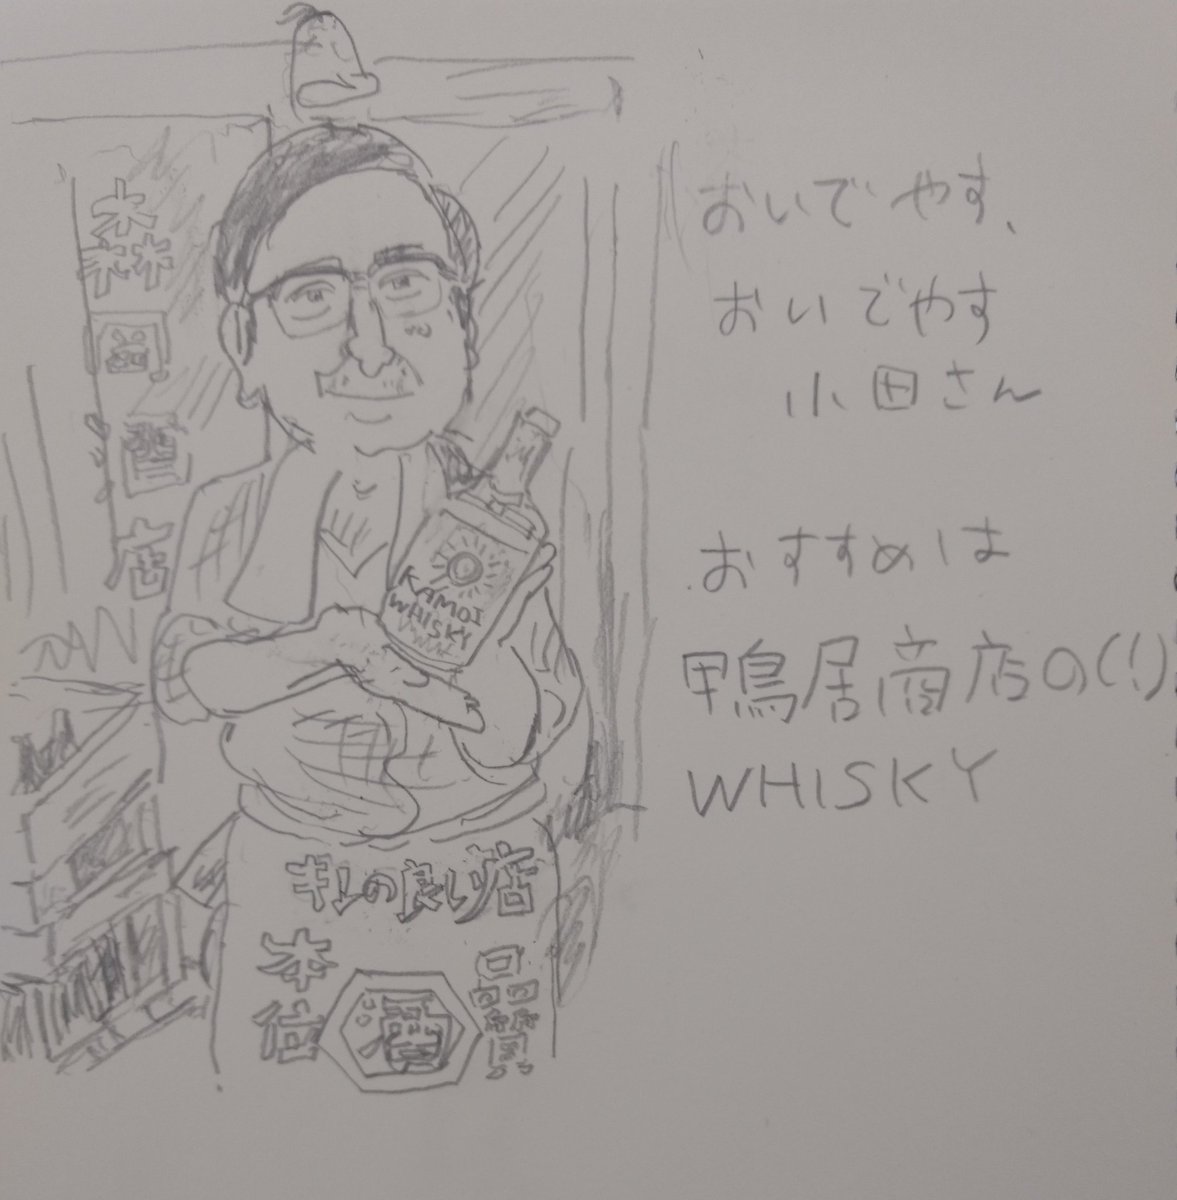 森岡酒店
おいでやす、
おいでやす
小田さん
おすすめは
鴨居商店の(!)
WHISKY
KAMOI
WHISKY
キレの良い店
本位
酒
品質